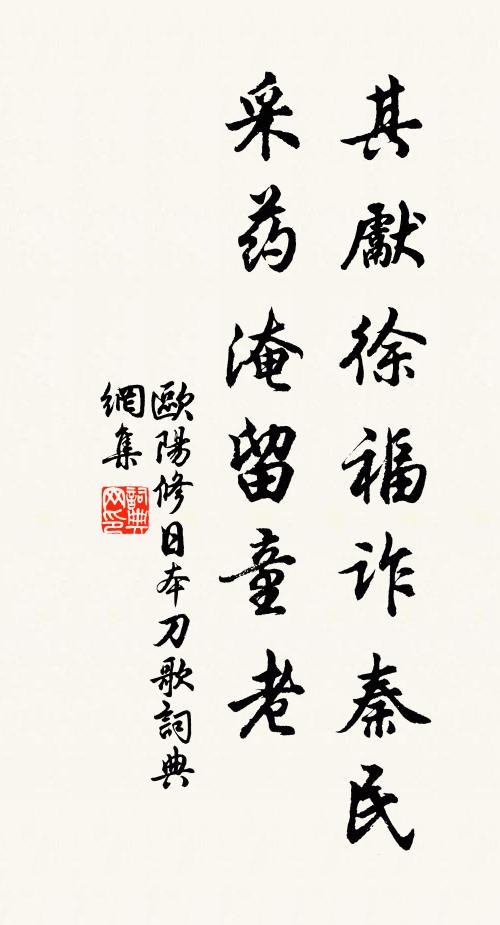 其獻徐福诈秦民
采药淹留童老
歐陽修日本刀歌詞典
網集
詞典
网印